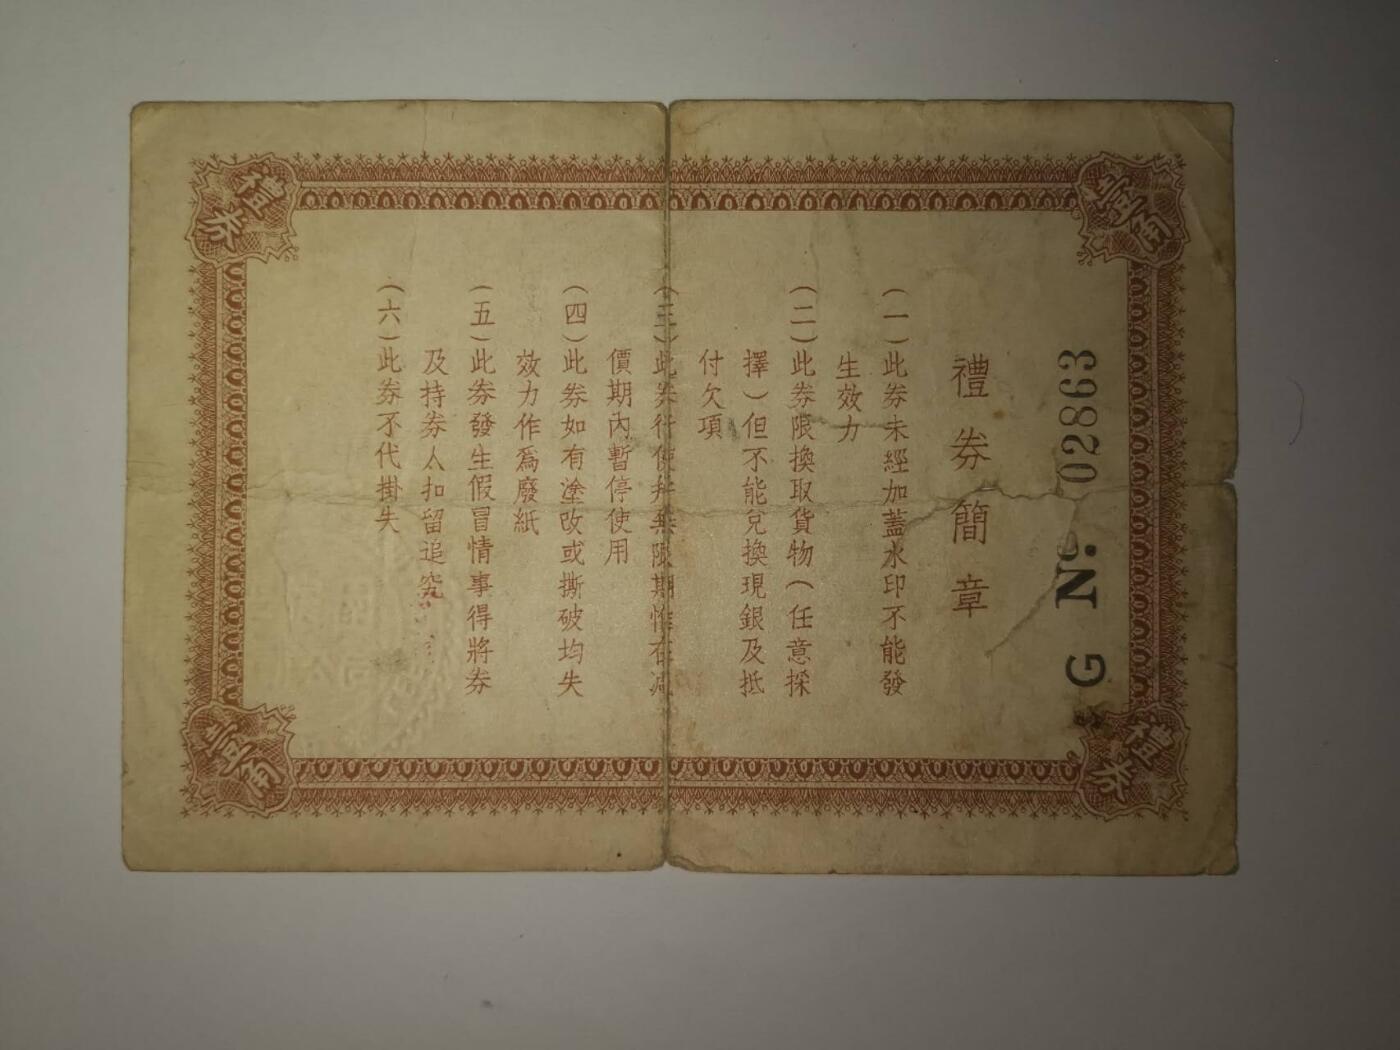 禮券簡章
(一)此券未經加蓋水印不能發
生效力
(二)此券限換取貨物(任意採
擇)但不能兌換現銀及抵
付欠項
(三)此券行使幷無限期惟在減
價期內暫停使用
(四)此券如有塗改或撕破均失
效力作爲廢紙
(五)此券發生假冒情事得將券
及持券人扣留追究
(六)此券不代掛失
G No. 02863
禮券
壹角
壹角
禮券